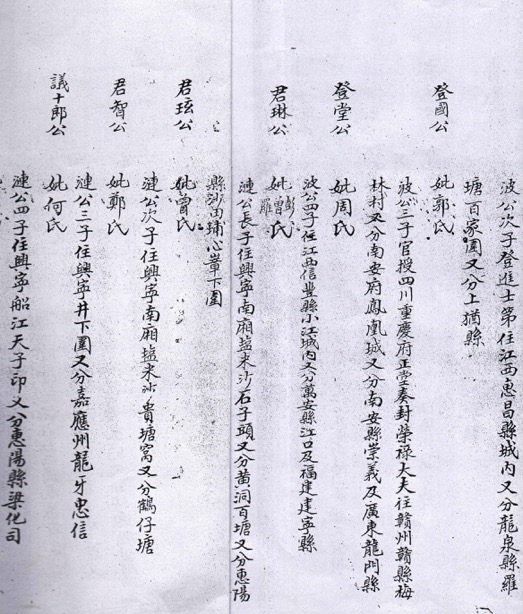 登國公
波公次子登進士第住江西惠昌縣城內又分龍泉縣羅
塘百家園又分上猶縣
妣郭氏
登堂公
波公三子官授四川重慶府正堂奏封榮祿大夫往贛州贛縣梅
林村又分南安府鳳凰城又分南安縣崇義及廣東龍門縣
妣周氏
君琳公
波公四子住江西信豐縣小江城內又分萬安縣江口及福建建寧縣
妣彭曾羅氏
漣公長子住興寧南廂塩米沙石子頭又分黃洞百塘又分惠陽
縣沙田埔心輋下圍
君玹公
妣曾氏
漣公次子住興寧南廂塩米沙貴塘窩又分鶴仔塘
君智公
妣鄭氏
漣公三子住興寧井下圍又分嘉應州龍牙忠信
議十郎公
妣何氏
漣公四子住興寧船江天子印又分惠陽縣梁化司